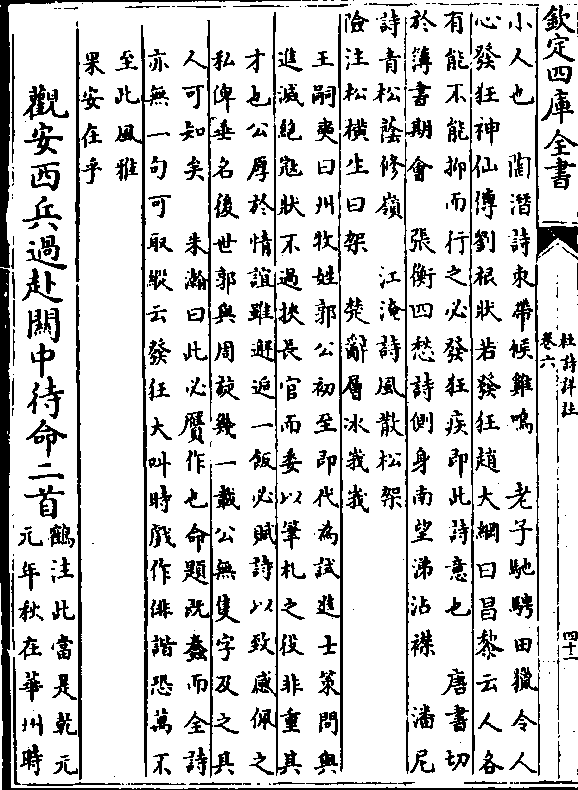 欽定四庫全書
杜詩詳註
卷六
四十一
小人也　陶潜詩束帶候雞鳴　老子馳騁田獵令人
心發狂神仙傳劉根狀若發狂趙大綱曰昌黎云人各
有能不能抑而行之必發狂疾即此詩意也　唐書切
於簿書期會　張衡四愁詩側身南望涕沾襟　潘尼
詩青松蔭修嶺　江淹詩風散松架
險注松橫生曰架　楚辭層冰峩峩
王嗣奭曰州牧姓郭公初至即代為試進士策問與
進滅絕寇狀不過挾長官而委以筆札之役非重其
才也公厚於情誼雖邂逅一飯必賦詩以致感佩之
私俾垂名後世郭與周旋幾一載公無隻字及之其
人可知矣　朱瀚曰此必贗作也命題既蠢而全詩
亦無一句可取縱云發狂大叫時戲作俳諧恐萬不
至此風雅
果安在乎
觀安西兵過赴關中待命二首
鶴注此當是乾元
元年秋在華州時